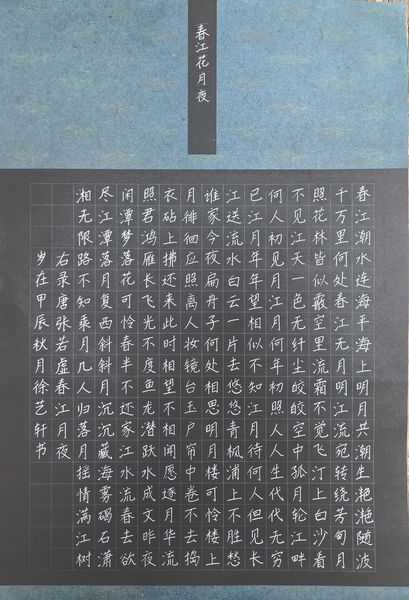 春江花月夜
春江潮水连海平海上明月共潮生滟滟随波
千万里何处春江无月明江流宛转绕芳甸月
照花林皆似霰空里流霜不觉飞汀上白沙看
不见江天一色无纤尘皎皎空中孤月轮江畔
何人初见月江月何年初照人人生代代无穷
已江月年年望相似不知江月待何人但见长
江送流水白云一片去悠悠青枫浦上不胜愁
谁家今夜扁舟子何处相思明月楼可怜楼上
月徘徊应照离人妆镜台玉户帘中卷不去捣
衣砧上拂还来此时相望不相闻愿逐月华流
照君鸿雁长飞光不度鱼龙潜跃水成文昨夜
闲潭梦落花可怜春半不还家江水流春去欲
尽江潭落月复西斜斜月沉沉藏海雾碣石潇
湘无限路不知乘月几人归落月摇情满江树
右录唐张若虚春江月夜
岁在甲辰秋月徐艺轩书